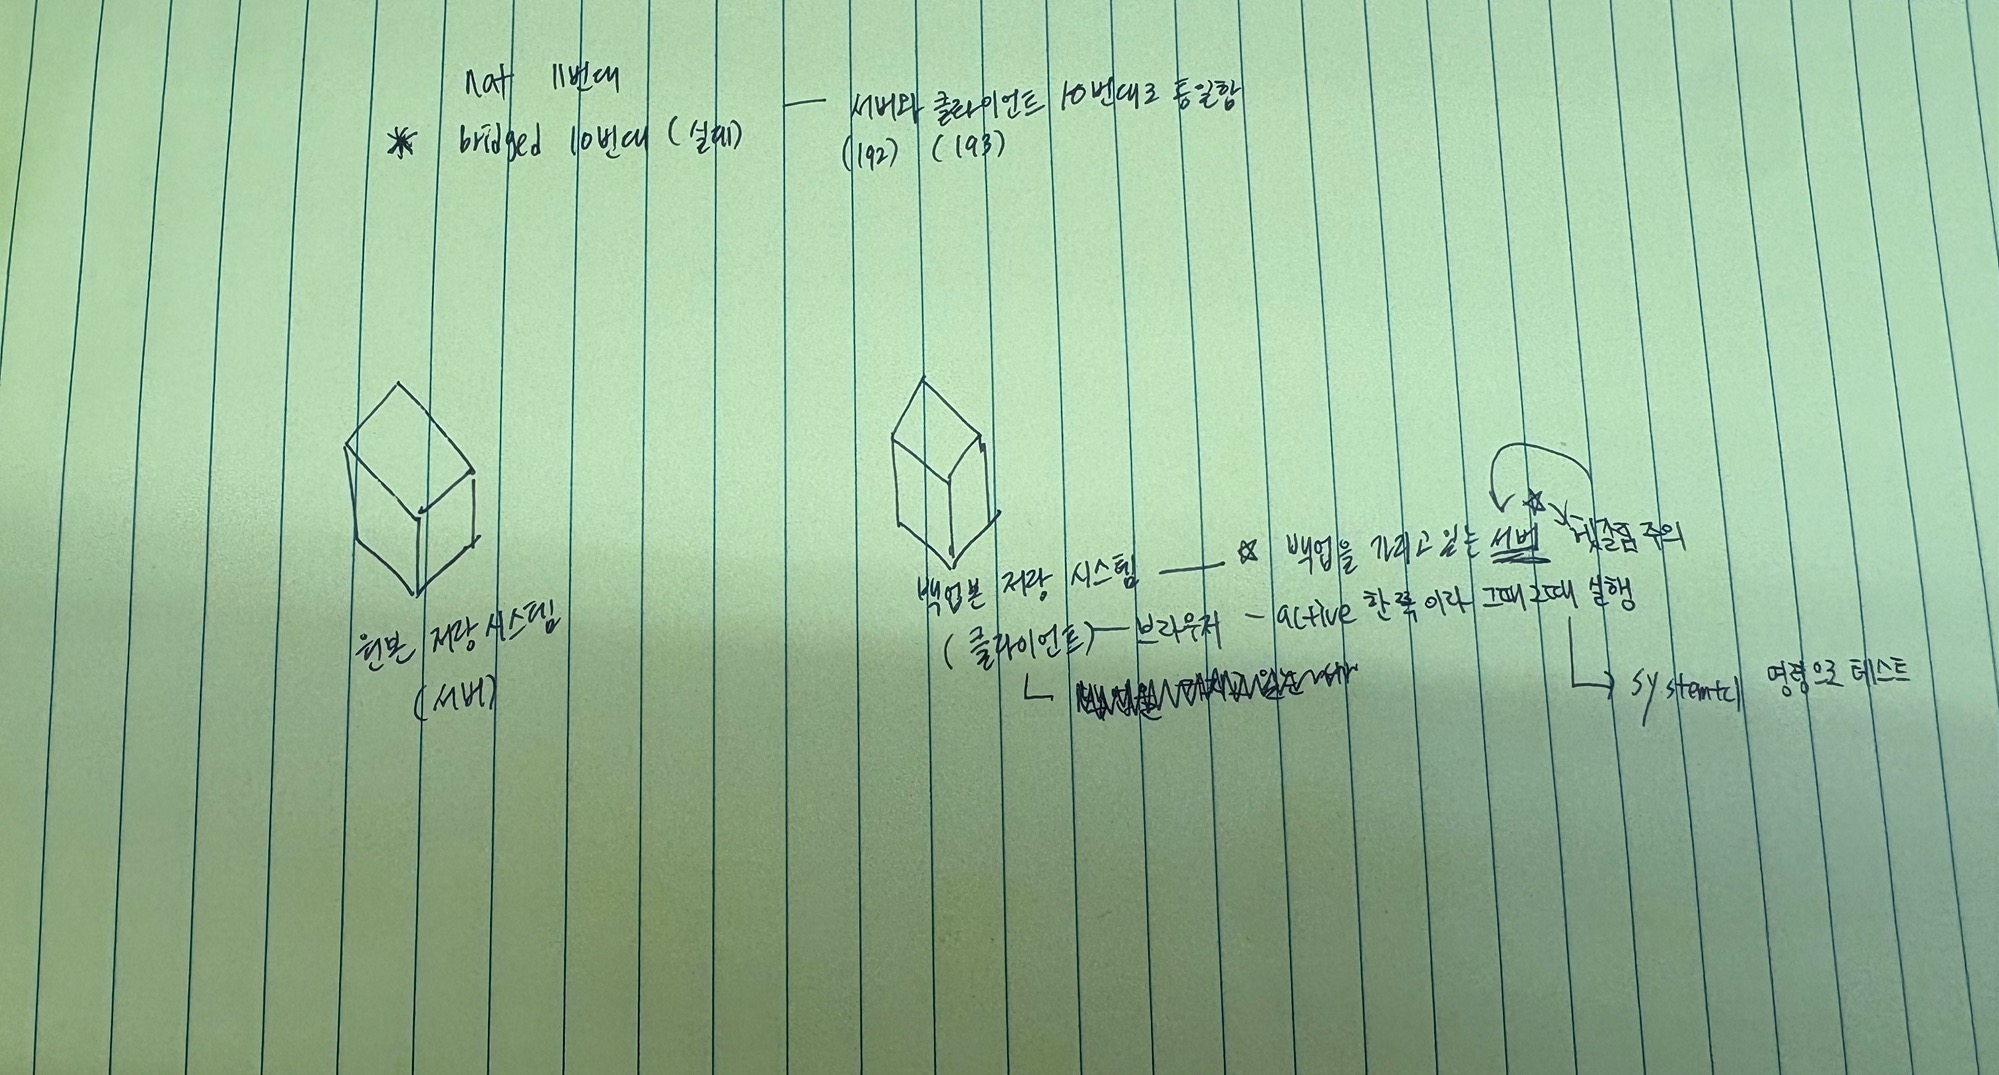 nat 11번대
* bridged 10번대 (실제) — 서버와 클라이언트 10번대로 통일함
(192) (193)
원본 저장 시스템
(서버)
백업본 저장 시스템 — ☆ 백업을 가지고 있는 서버 ☆ 헷갈림 주의
(클라이언트) — 브라우저 - active 한 쪽이라 그때그때 실행
systemctl 명령으로 테스트